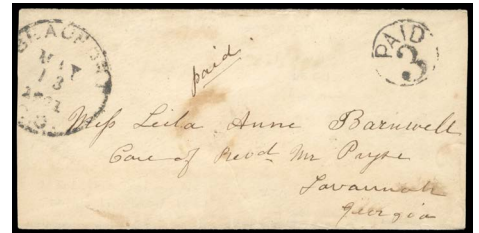 BEAUFORT
MAY
13
1861
S.C.
paid
PAID
3
Miss Leila Anne Barnwell
Care of Revd Mr Pryse
Savannah
Georgia